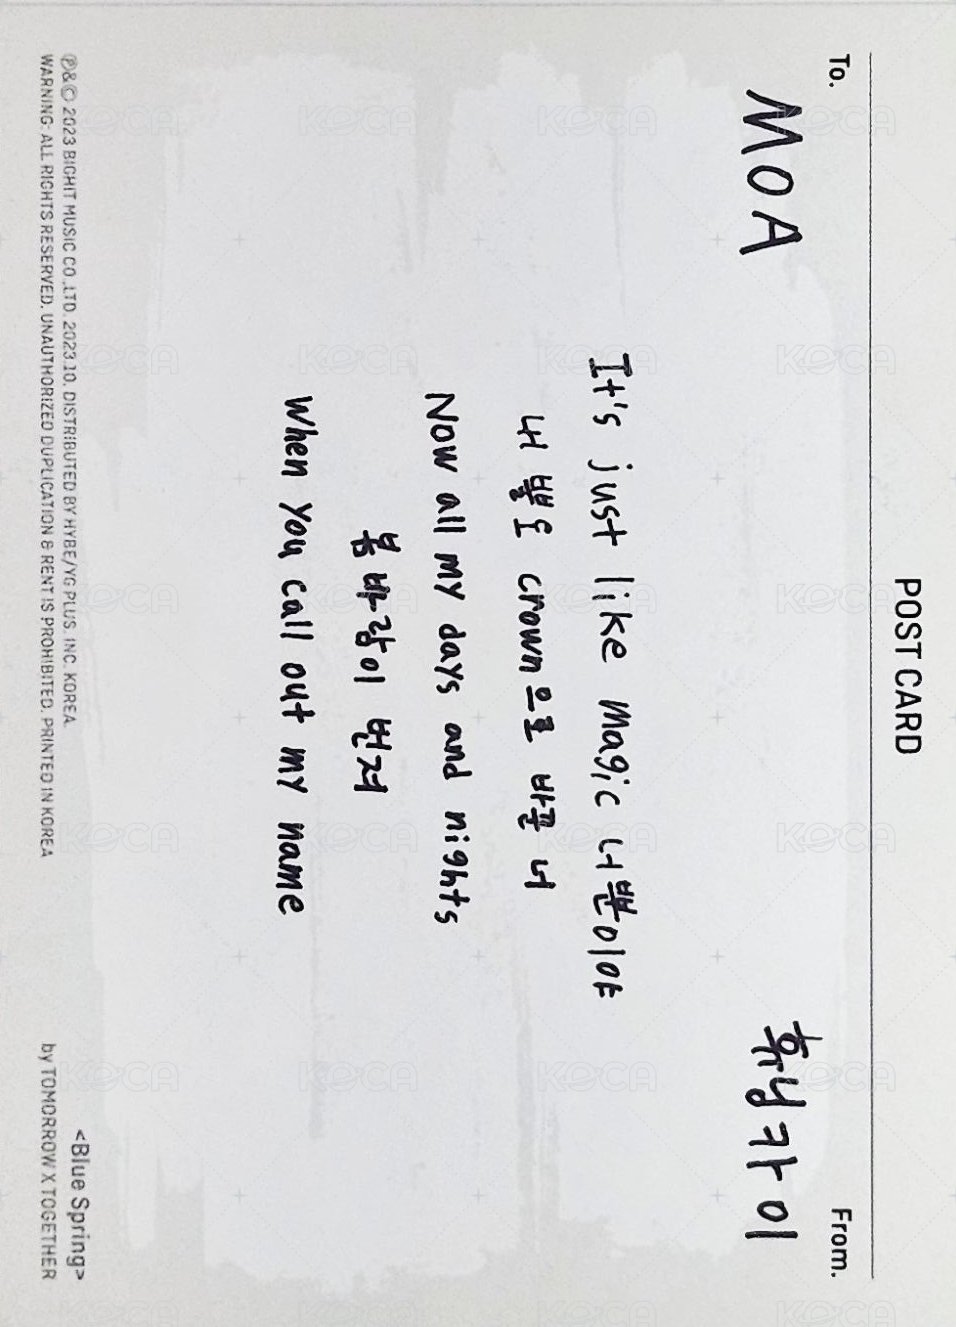 POST CARD
To.
From.
MOA
휴닝카이
It's just like magic 너뿐이야
내 뿔도 crown으로 바꾼 너
Now all my days and nights
봄바람이 번져
When you call out my name
<Blue Spring>
by TOMORROW X TOGETHER
℗&© 2023 BIGHIT MUSIC CO.,LTD. 2023.10. DISTRIBUTED BY HYBE/YG PLUS, INC. KOREA.
WARNING: ALL RIGHTS RESERVED. UNAUTHORIZED DUPLICATION & RENT IS PROHIBITED. PRINTED IN KOREA
KOCA